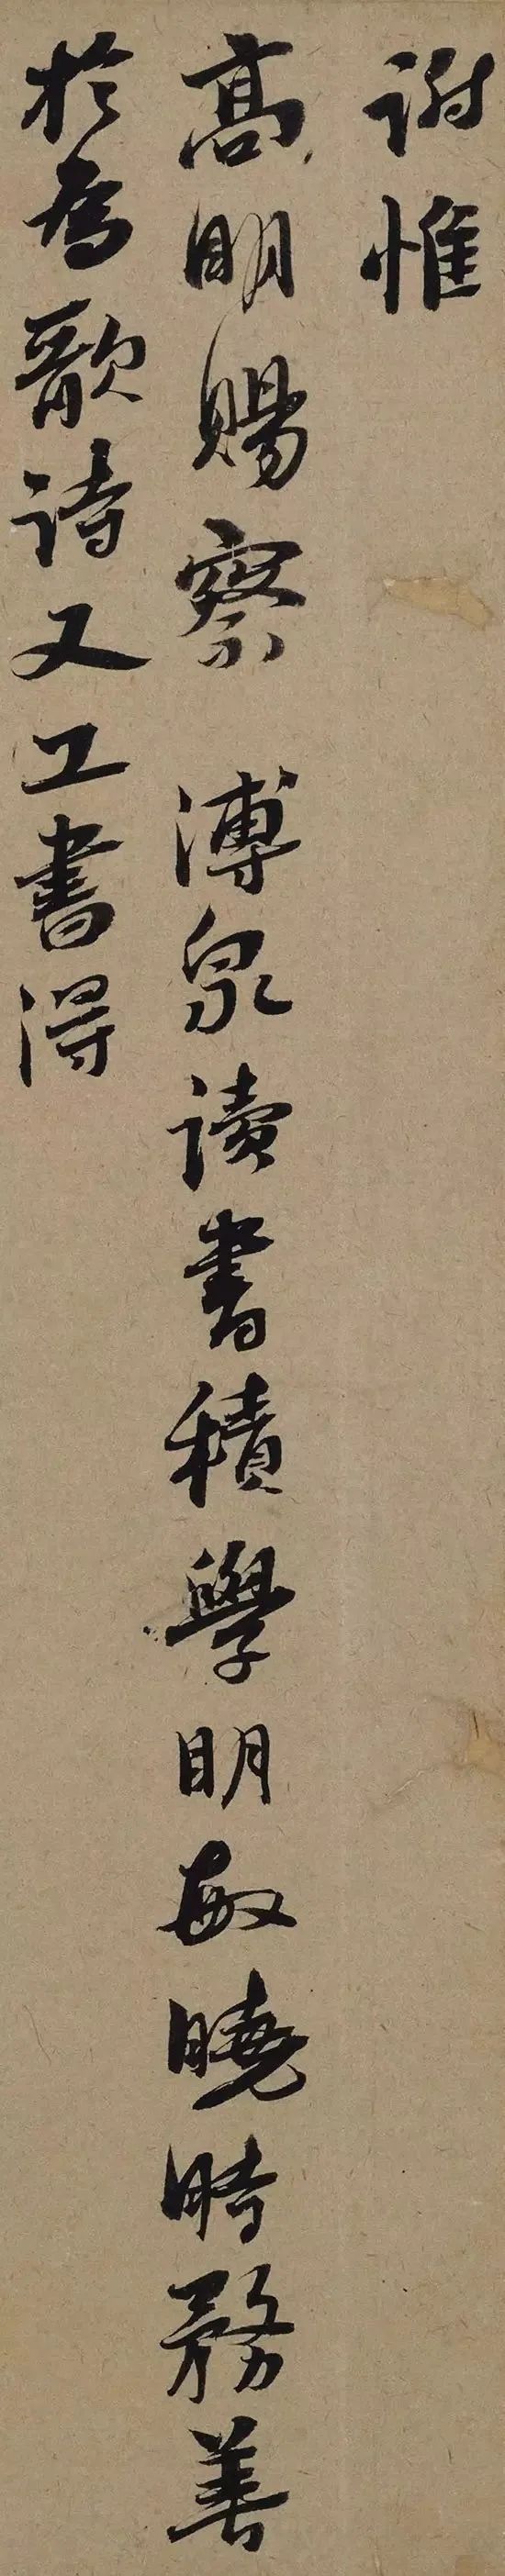 謝惟
高明賜察 溥泉讀書積學明敏曉時務善
於為歌詩又工書得